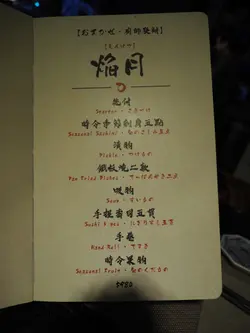 【おまかせ・廚師發辦】
焰月
先付
Starter・さきづけ
時令季節刺身五點
Seasonal Sashimi・
漬物
Pickle・つけもの
鐵板燒二款
Pan Fried Dishes・てっぱんやき二点
吸物
Soup・すいもの
手握壽司五貫
Sushi 5 pcs・にぎりずし五貫
手卷
Hand Roll・てまき
時令果物
Seasonal Fruit・